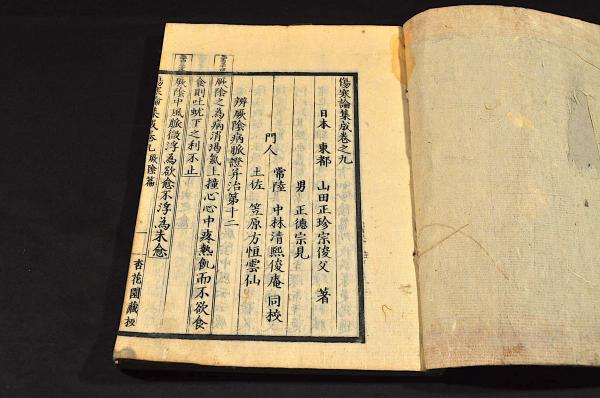 傷寒論集成卷之九
日本 東都 山田正珍宗俊父 著
男 正德宗見
門人
常陸 中林清熙俊庵 同挍
土佐 笠原方恒雲仙
辨厥陰病脈證并治第十二
厥陰之為病消渴氣上撞心心中疼熱飢而不欲食
食則吐蚘下之利不止
厥陰中風脈微浮為欲愈不浮為未愈
傷寒論集成卷九 厥陰篇
一
杏花園藏板